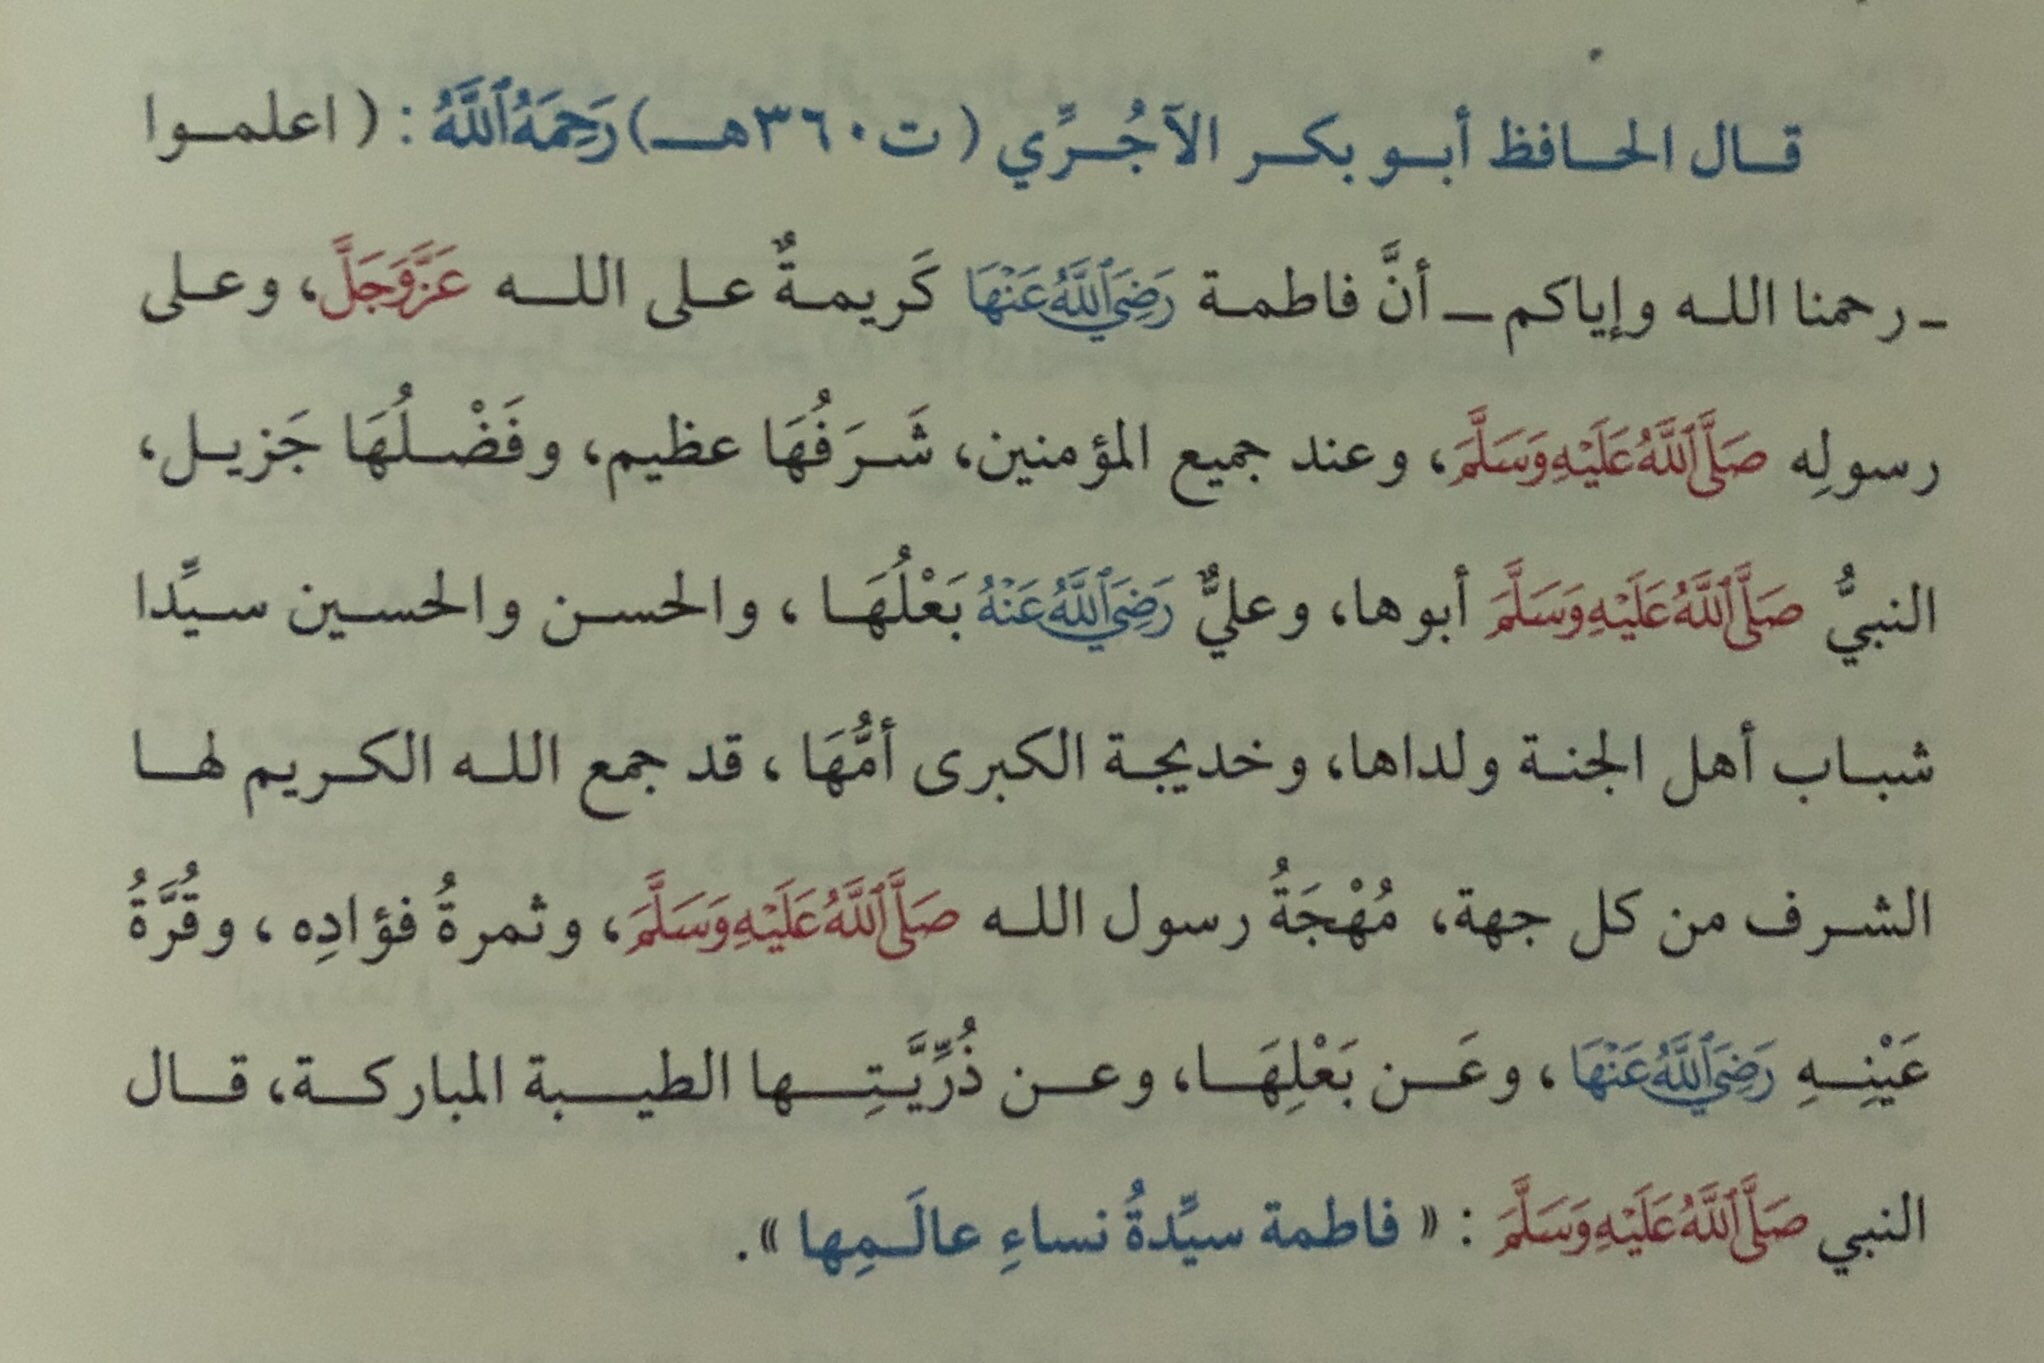 قال الحافظ أبو بكر الآجُرِّي (ت٣٦٠هـ) رَحِمَهُ ٱللَّهُ : ( اعلموا
ـ رحمنا الله وإياكم ـ أنَّ فاطمة رَضِيَ ٱللَّهُ عَنْهَا كَريمةٌ على الله عَزَّوَجَلَّ، وعلى
رسولِه صَلَّى ٱللَّهُ عَلَيْهِ وَسَلَّمَ، وعند جميع المؤمنين، شَرَفُهَا عظيم، وفَضْلُهَا جَزيل،
النبيُّ صَلَّى ٱللَّهُ عَلَيْهِ وَسَلَّمَ أبوها، وعليٌّ رَضِيَ ٱللَّهُ عَنْهُ بَعْلُهَا ، والحسن والحسين سيِّدا
شباب أهل الجنة ولداها، وخديجة الكبرى أمُّهَا ، قد جمع الله الكريم لها
الشرف من كل جهة، مُهْجَةُ رسول الله صَلَّى ٱللَّهُ عَلَيْهِ وَسَلَّمَ، وثمرةُ فؤادِه ، وقُرَّةُ
عَيْنِهِ رَضِيَ ٱللَّهُ عَنْهَا ، وعَن بَعْلِهَا، وعن ذُرِّيَّتِها الطيبة المباركة، قال
النبي صَلَّى ٱللَّهُ عَلَيْهِ وَسَلَّمَ : « فاطمة سيِّدةُ نساءِ عالَمِها ».